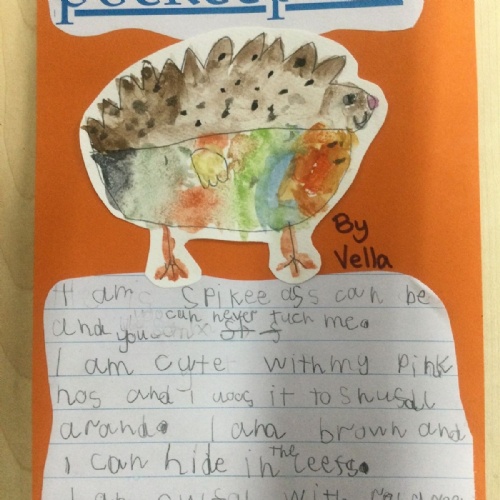 By
Vella
I am spikee ass can be
and you can never tuch me.
I am cute withmy pink
nos and i uos it to shusall
arand. I ana brown and
i can hide in the leefs.
I am
with